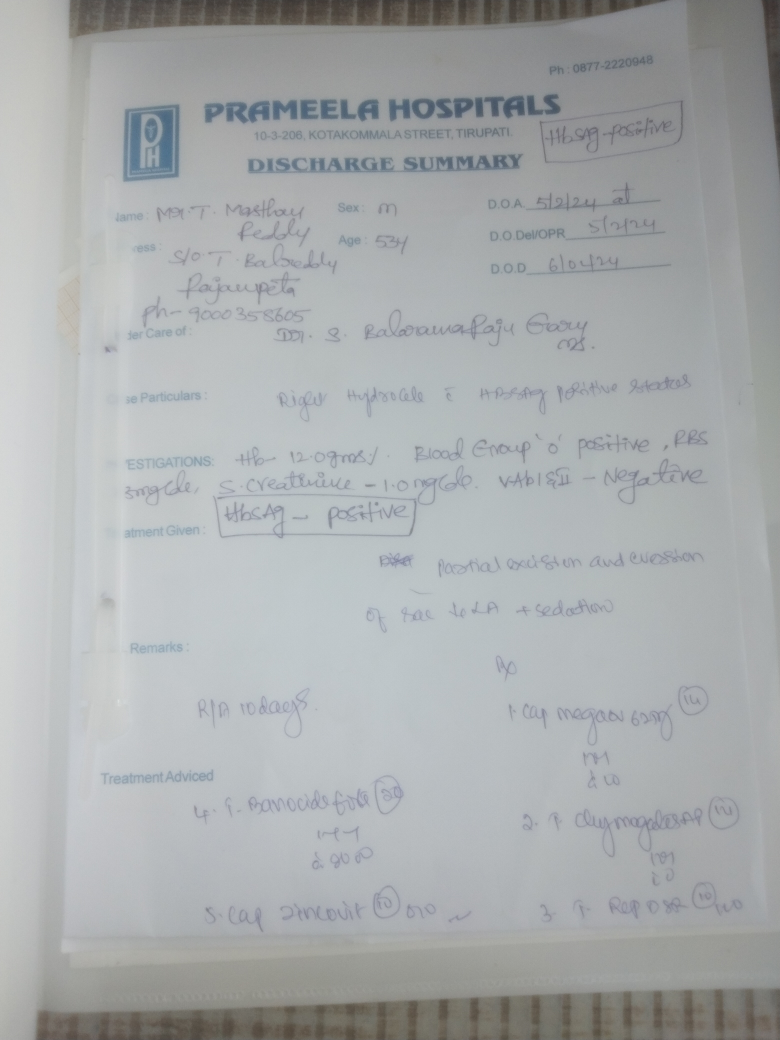 Ph : 0877-2220948
PRAMEELA HOSPITALS
10-3-206, KOTAKOMMALA STREET, TIRUPATI.
HbsAg-positive
DISCHARGE SUMMARY
Name : Mr. T. Masthan Reddy
Sex : M
D.O.A 5/2/24 at
Age : 53Y
D.O.Del/OPR 5/2/24
ress : S/O T. Babreddy
D.O.D 6/02/24
Rajampeta
Ph- 9000358605
der Care of : Dr. S. Balarama Raju Garu
MS.
se Particulars : Right Hydrocele c HBSAg positive
ESTIGATIONS: Hb- 12.0gms%. Blood Group 'O' positive, RBS
3mg/dl, S. Creatinine - 1.0mg/dl. - Negative
HbsAg - positive
atment Given :
Partial excision and eversion
of sac LA + sedation
Remarks :
R/A 10days.
Rx
1. Cap 625mg 14
Treatment Adviced
4. T. Banocide forte 20
2. T. 14
5. Cap Zincovit 10 010
3. T. Rep DSR 10